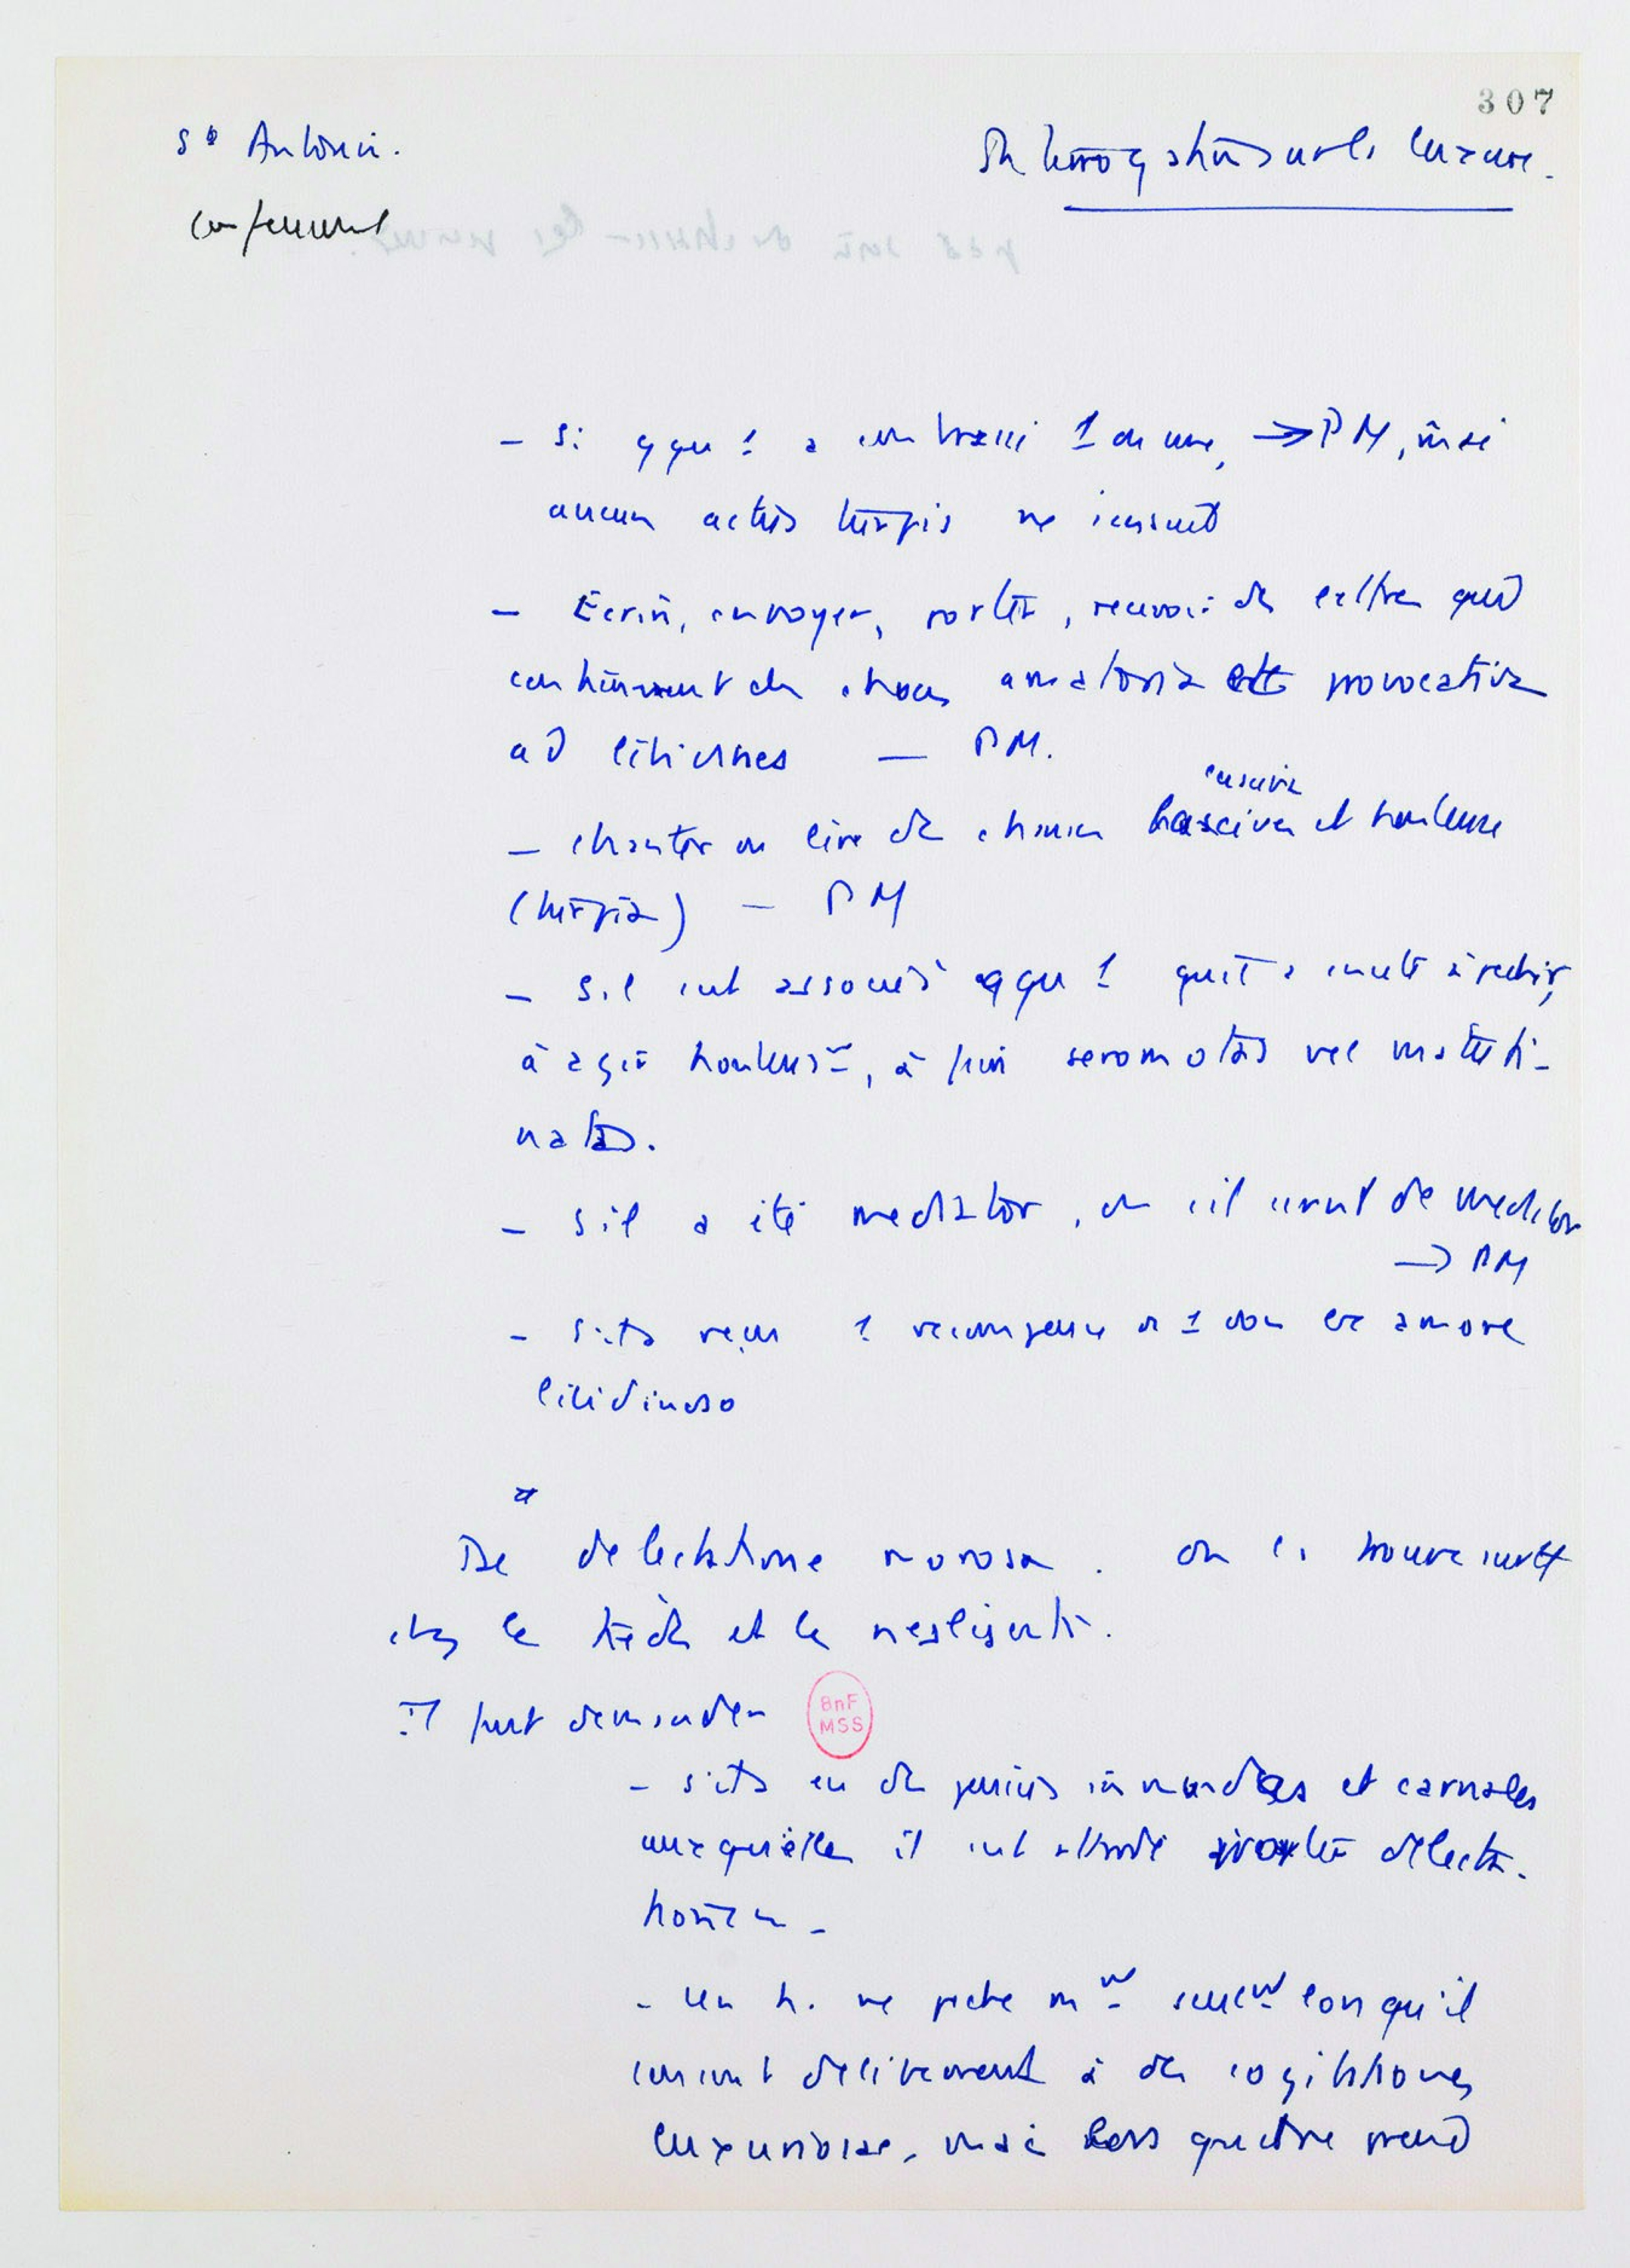 307
St Antonin.
Confessional
Interrogation sur la luxure.
- Si qqu'1 a embrassé 1 femme, → PM, même si
aucun actus turpis ne s'ensuit
- Ecrire, envoyer, porter, recevoir des lettres qui
contiennent des choses amatoria et provocativa
ad libidines — PM.
- chanter ou lire des choses lascives et honteuses
(turpia) — PM
- S'il s'est associé à qqu'1 qui
à agir honteust, à faire seromatas vel mattuti-
natas.
- s'il a été mediator, ou s'il s'est servi de mediator
→ PM
- s'il a reçu 1 récompense ou 1 don ex amore
libidinoso
*
De delectatione morosa. on la trouve surtt
chez le tiède et le négligent.
Il faut demander
BnF
MSS
- s'il a eu des pensées immundas et carnales
auxquelles il s'est attardé propter delecta-
tionem -
- Un h. ne pèche mt seult lorsqu'il
consent délibérément à des cogitationes
luxuriosae, mais lorsque prend